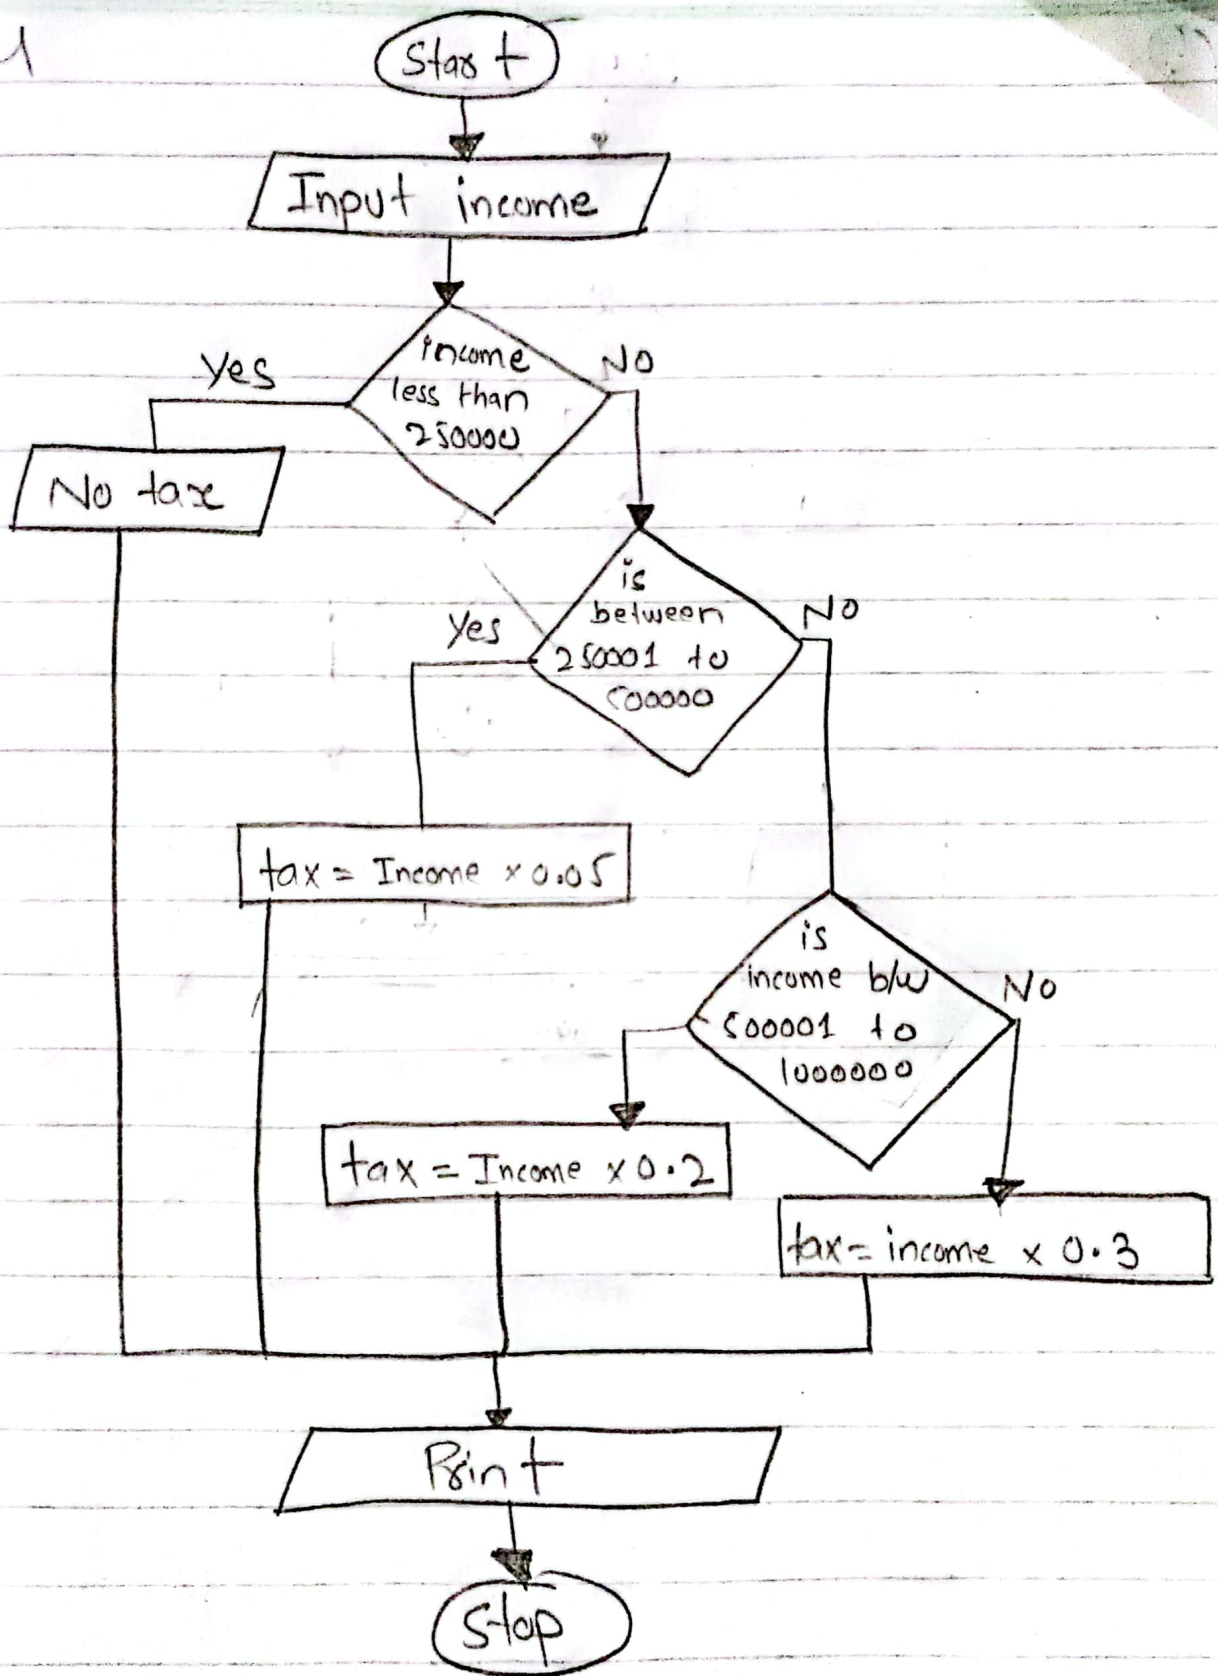 1
Start
Input income
income
less than
250000
Yes
NO
No tax
is
between
250001 to
500000
Yes
NO
tax = Income × 0.05
is
income b/w
500001 to
1000000
NO
tax = Income × 0.2
tax = income × 0.3
Print
Stop